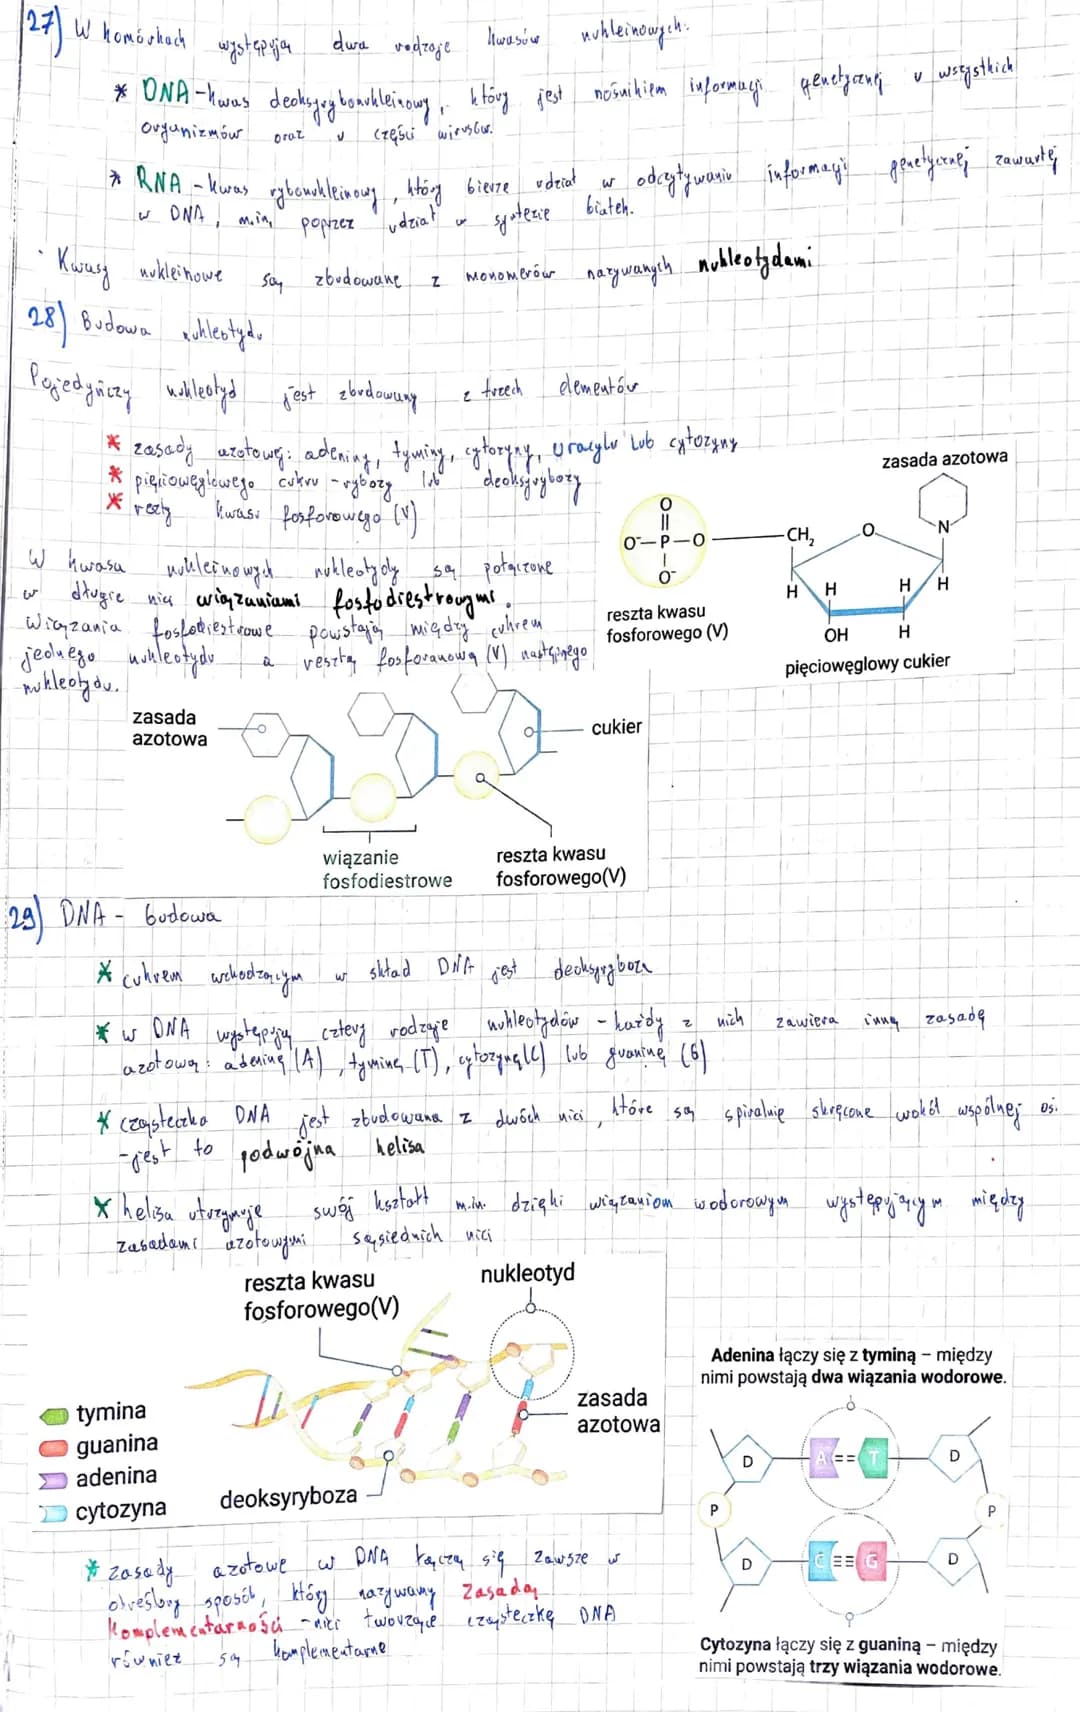 27) W komórkach występują dwa rodzaje kwasów nukleinowych:
* DNA - kwas deoksyrybonukleinowy, który jest nośnikiem informacji genetycznej u wszystkich
organizmów oraz u części wirusów.
* RNA - kwas rybonukleinowy, który bierze udział w odczytywaniu informacji genetycznej zawartej
w DNA, m.in. poprzez udział w syntezie białek.
· Kwasy nukleinowe są zbudowane z monomerów nazywanych nukleotydami
28) Budowa nukleotydu
Pojedyńczy nukleotyd jest zbudowany z trzech elementów
* zasady azotowej: adeniny, tyminy, cytozyny, uracylu lub cytozyny
* pięciowęglowego cukru - rybozy lub deoksyrybozy
* reszty kwasu fosforowego (V)
W kwasach nukleinowych nukleotydy są połączone
w długie nici wiązaniami fosfodiestrowymi.
Wiązania fosfodiestrowe powstają między cukrem
jednego nukleotydu a resztą fosforanową (V) następnego
nukleotydu.
zasada azotowa
O
O⁻—P—O
O⁻
CH₂
O
N
H
H
H
H
OH
H
reszta kwasu
fosforowego (V)
pięciowęglowy cukier
zasada
azotowa
cukier
wiązanie
fosfodiestrowe
reszta kwasu
fosforowego(V)
29) DNA - budowa
* cukrem wchodzącym w skład DNA jest deoksyryboza
* w DNA występują cztery rodzaje nukleotydów - każdy z nich zawiera inną zasadę
azotową: adeninę (A), tyminę (T), cytozynę (C) lub guaninę (G)
* cząsteczka DNA jest zbudowana z dwóch nici, które są spiralnie skręcone wokół wspólnej osi.
- jest to podwójna helisa
* helisa utrzymuje swój kształt m.in. dzięki wiązaniom wodorowym występującym między
zasadami azotowymi sąsiednich nici
reszta kwasu
fosforowego(V)
nukleotyd
zasada
azotowa
tymina
guanina
adenina
cytozyna
deoksyryboza
Adenina łączy się z tyminą – między
nimi powstają dwa wiązania wodorowe.
D
A == T
D
P
P
D
C ≡≡ G
D
Cytozyna łączy się z guaniną – między
nimi powstają trzy wiązania wodorowe.
* zasady azotowe w DNA łączą się zawsze w
określony sposób, który nazywamy Zasadą
Komplementarności - nici tworzące cząsteczkę DNA
również są komplementarne